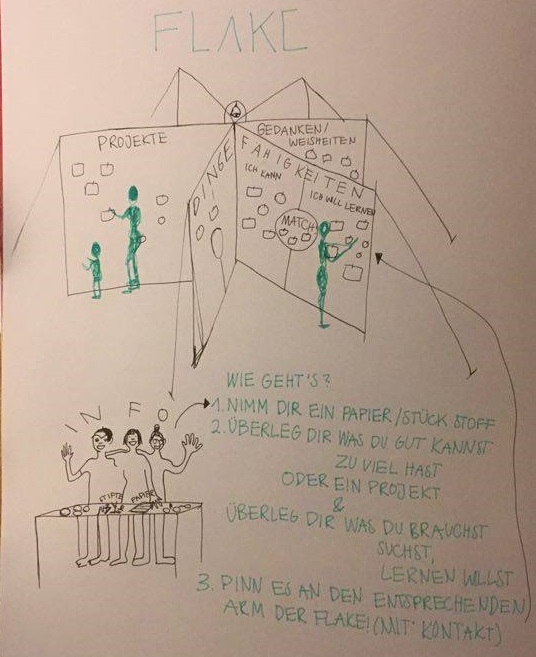 FLAKE
PROJEKTE
GEDANKEN/
WEISHEITEN
DINGE
FÄHIGKEITEN
ICH KANN
ICH WILL LERNEN
MATCH
INFO
STIFTE
PAPIER
WIE GEHT'S?
1. NIMM DIR EIN PAPIER/STÜCK STOFF
2. ÜBERLEG DIR WAS DU GUT KANNST
ZU VIEL HAST
ODER EIN PROJEKT
&
ÜBERLEG DIR WAS DU BRAUCHST
SUCHST,
LERNEN WILLST
3. PINN ES AN DEN ENTSPRECHENDEN
ARM DER FLAKE! (MIT KONTAKT)